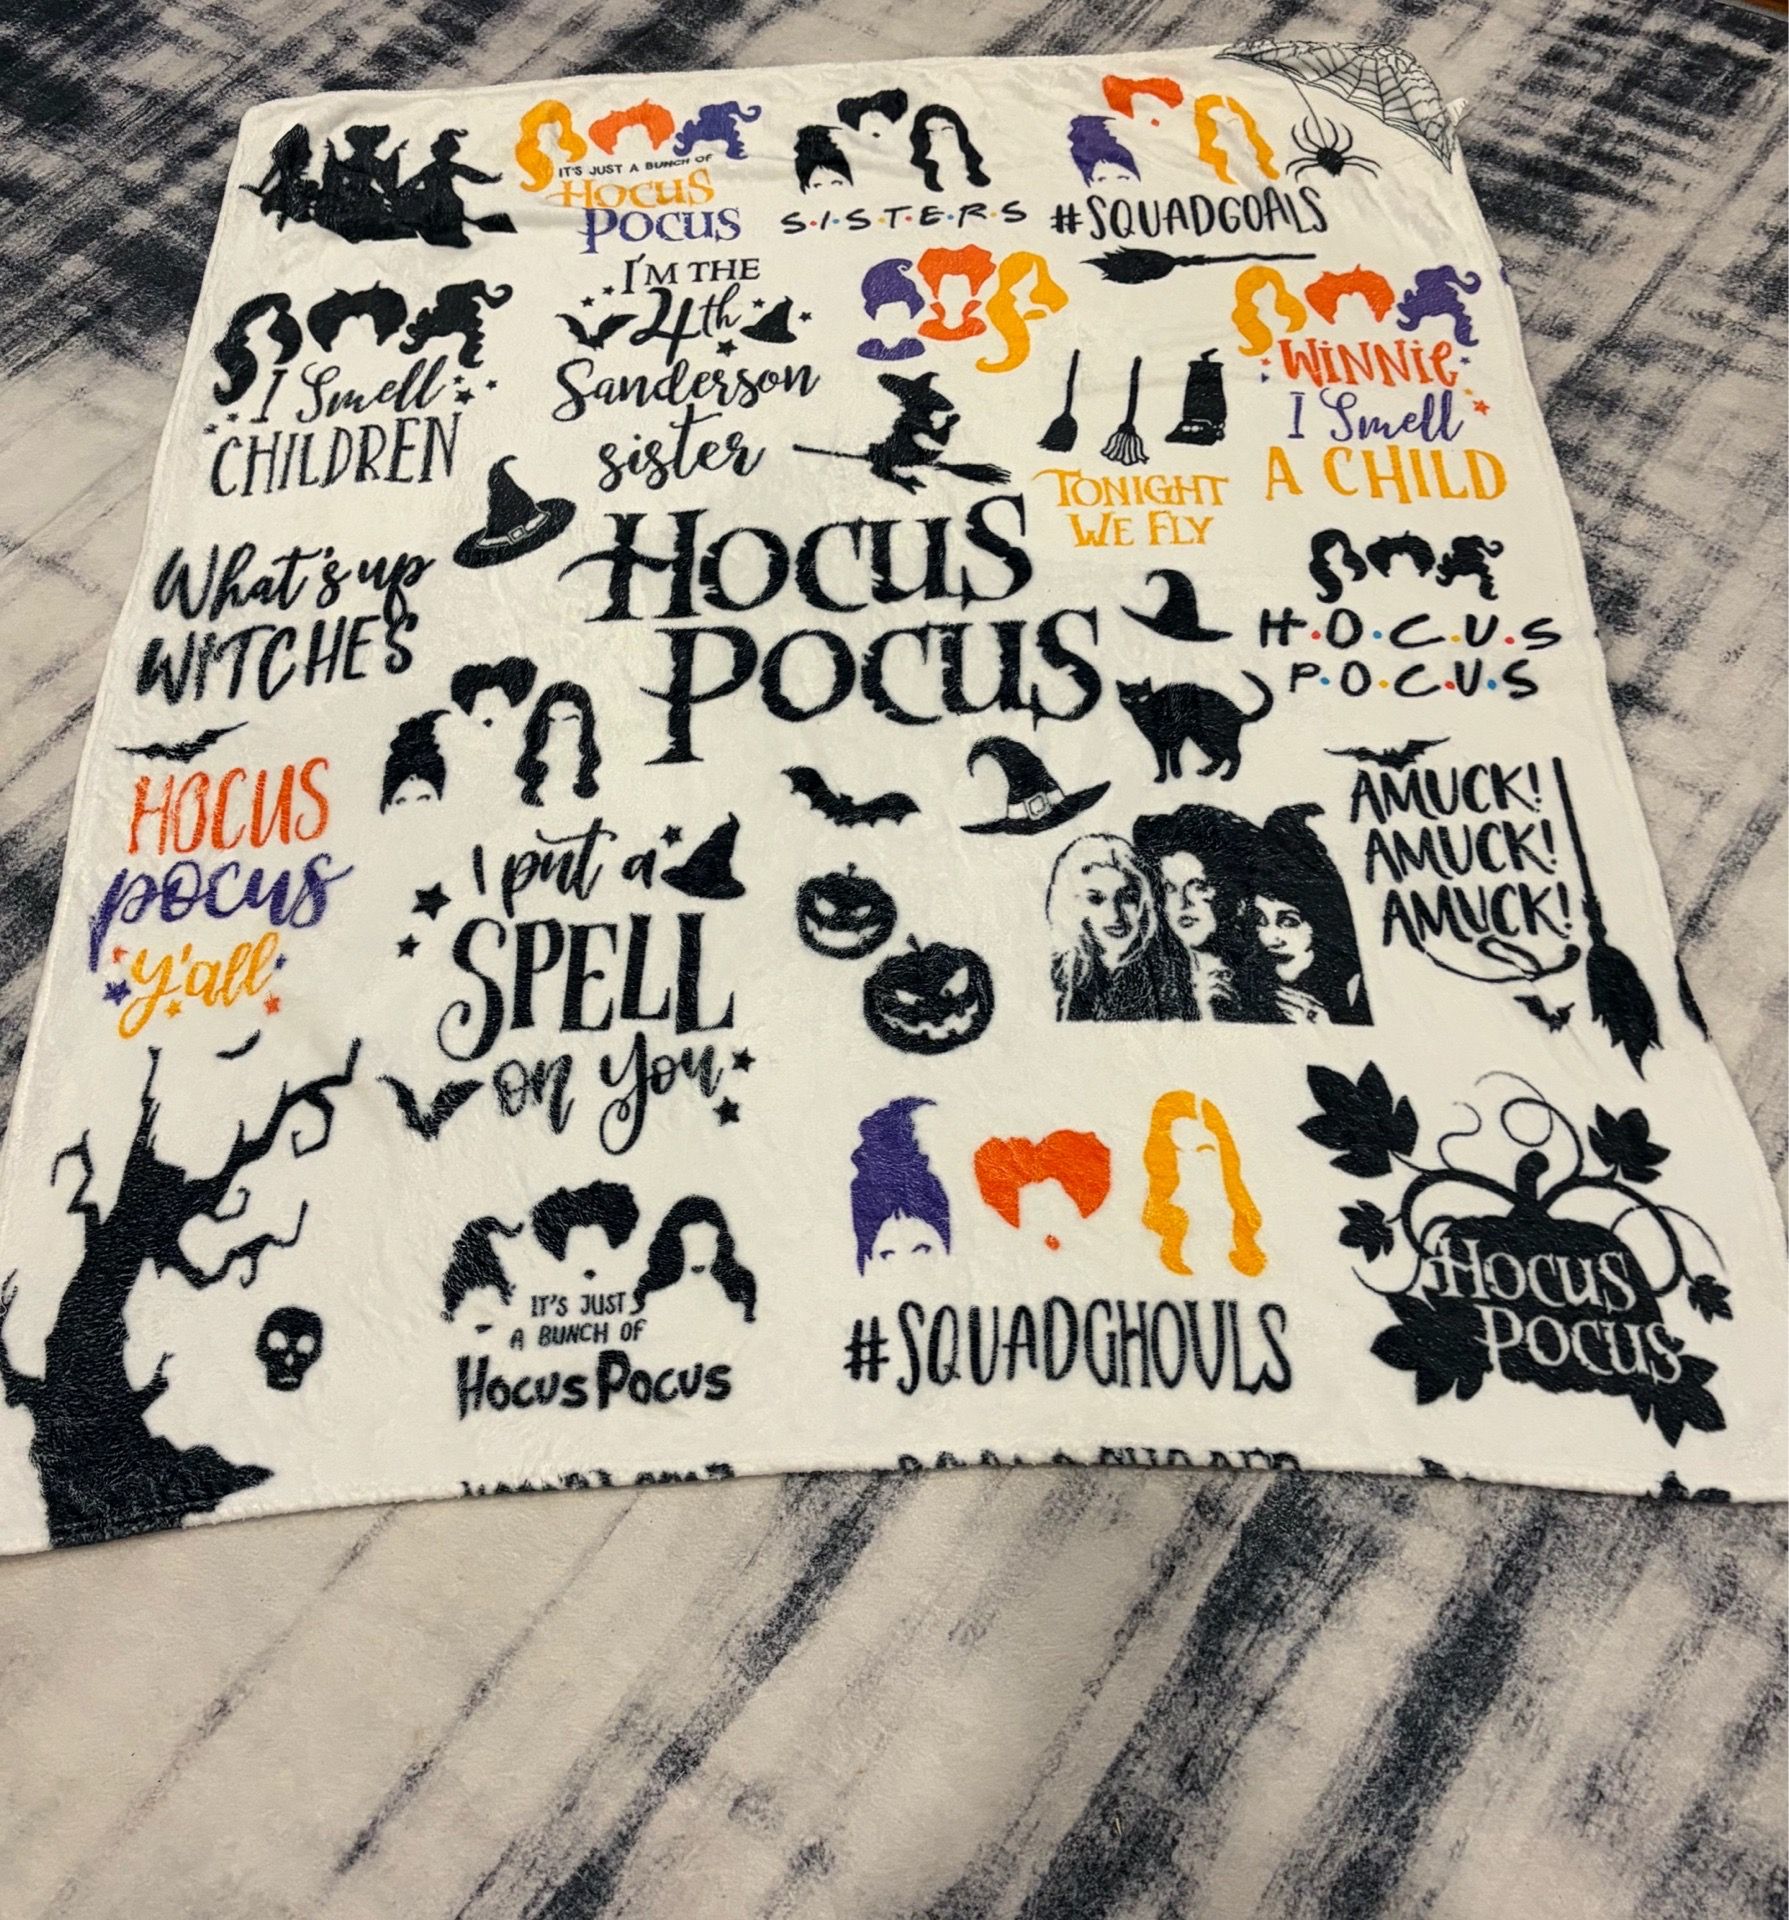 IT'S JUST A BUNCH OF
HOCUS
POCUS
S.I.S.T.E.R.S
#SQUADGOALS
I Smell
CHILDREN
I'M THE
4th
Sanderson
sister
WINNIE
I Smell
A CHILD
TONIGHT
WE FLY
What's up
WITCHES
HOCUS
POCUS
H.O.C.U.S
P.O.C.U.S
HOCUS
pocus
y'all
I put a
SPELL
on you
AMUCK!
AMUCK!
AMUCK!
IT'S JUST
A BUNCH OF
HOCUS POCUS
#SQUADGHOULS
HOCUS
POCUS